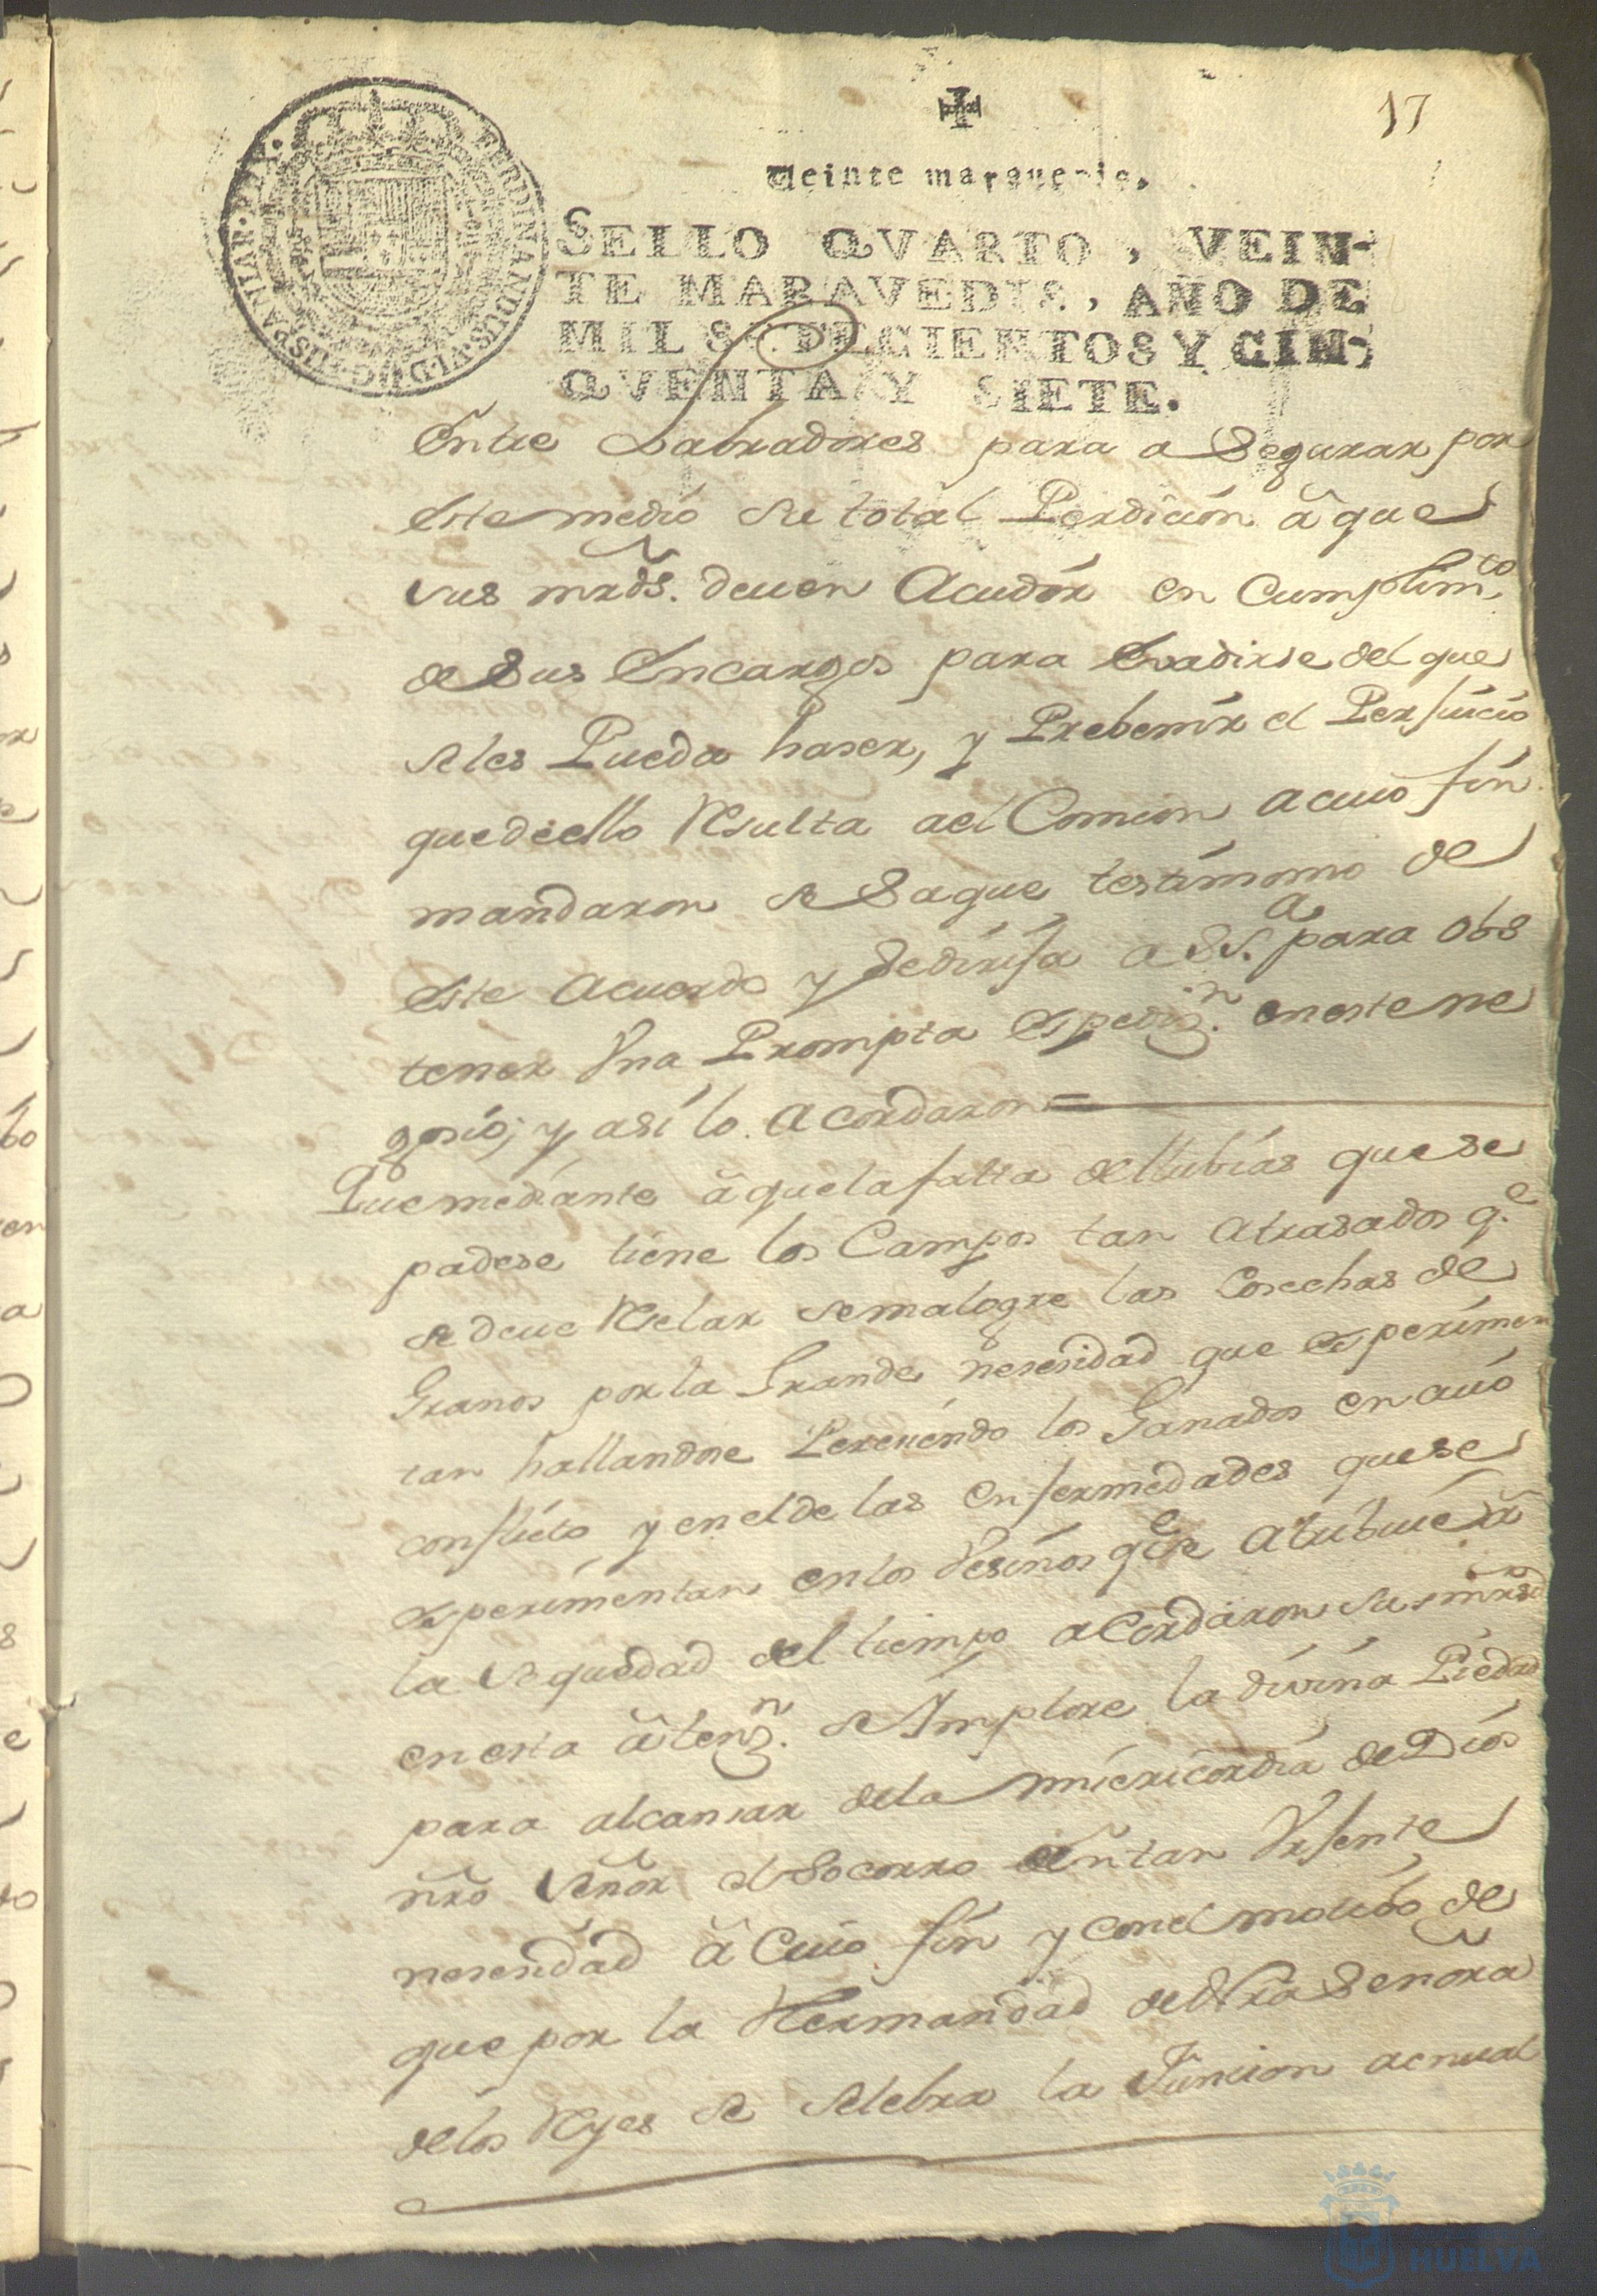 17
Veinte marauedis.
SELLO QVARTO, VEIN-
TE MARAVEDIS, AÑO DE
MIL SETECIENTOS Y CIN-
QVENTA Y SIETE.
FERDINANDUS·VI·D·G·HISPANIAR·REX·
Entre Labradores para a Segurar por
este medio su total Perdicion â que
sus mrds. deuen Acudir en Cumplimto.
de Sus Encargos para Evadirse del que
seles Pueda haser, y Prebenir el Perjuicio
quedeello Resulta ael Comun acuio fin
mandaron se Saque testimonio de
este Acuerdo y Sedirija a SSa. para obs
tener Vna Prompta espedizn. eneste ne
gosio; y asi lo acordaron =
Quemediante â quela falta dellubias que se
padese tiene los Campos tan atrasados qe.
se deue Reselar semalogre las Cosechas de
Granos porla Grande nesesidad que esperimen
tan hallandose Pereciendo los Ganados en cuio
conflicto y eneldelas enfermedades quese
esperimentan enlos Vesinos qe. se atribuie â
la sequedad del tiempo aCordaron sus mrds
en esta âtenzn. se Ymplore la divina Piedad
para alcansar dela misericordia de Dios
nro Señor el Socorro entan Vrjente
nesesidad â Cuio fin y conel motibo de
que por la Hermandad de Nra Señora
delos Reyes se Selebra la Funcion aenual
HUELVA